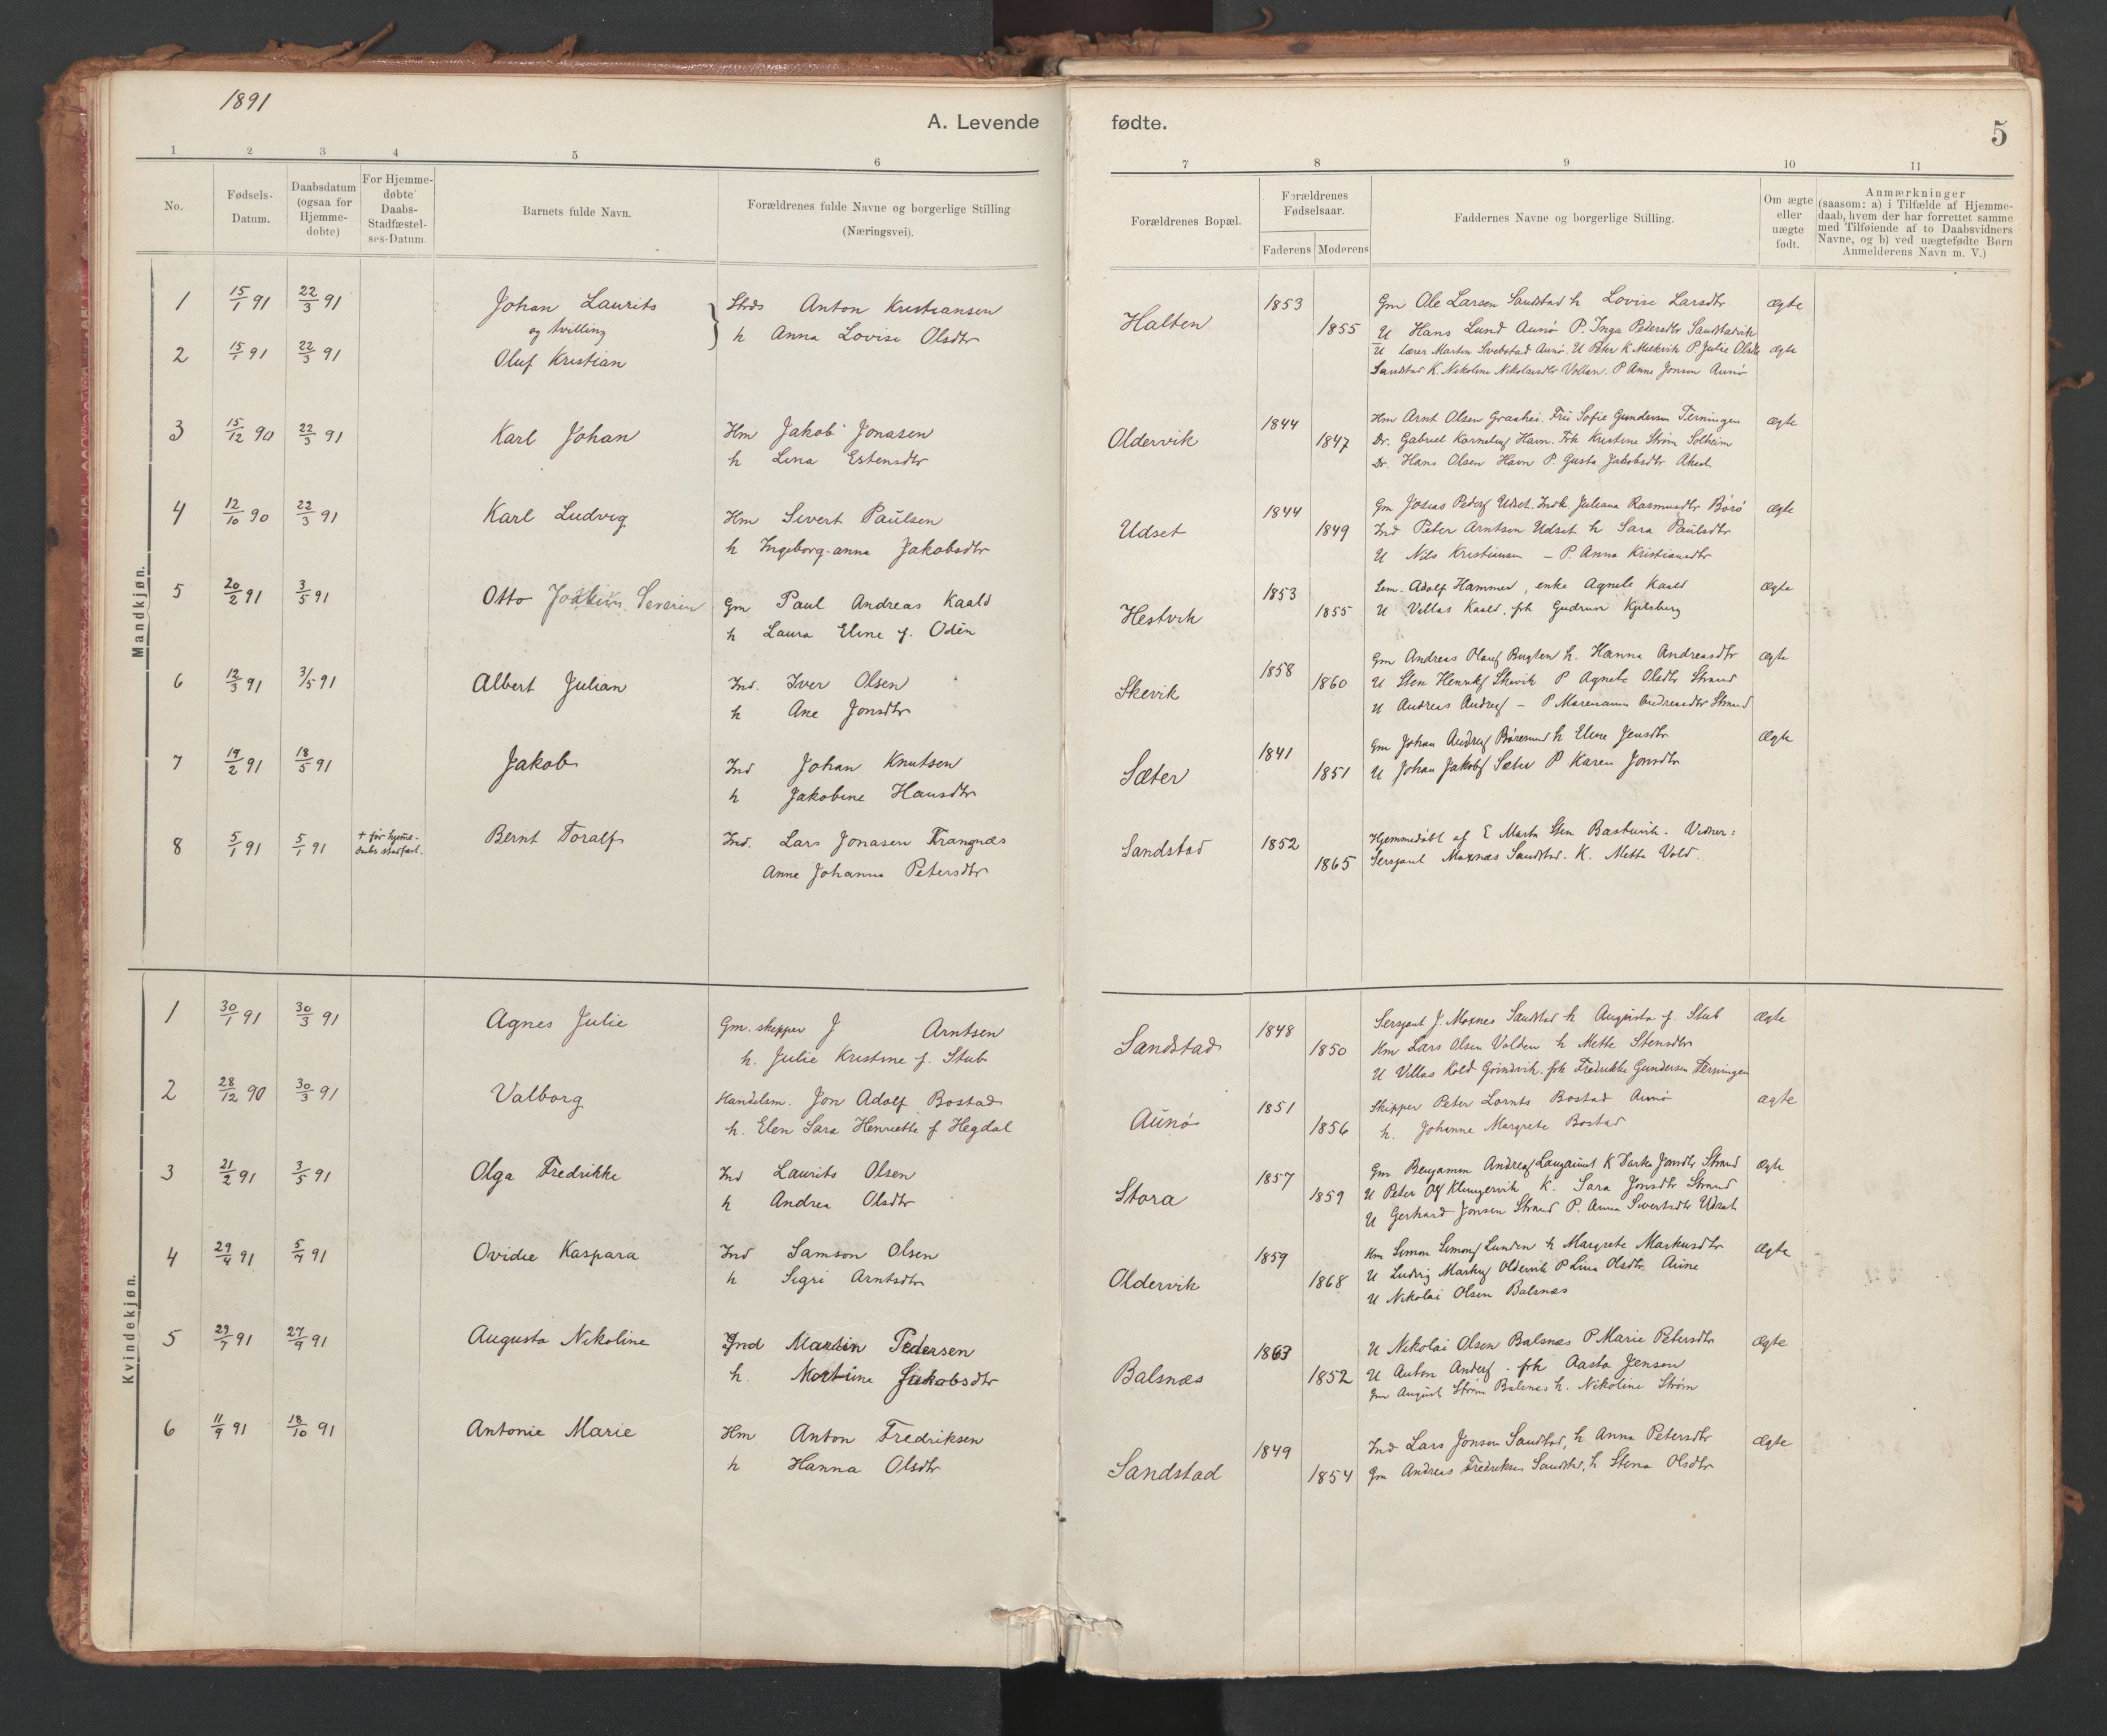 1891
A. Levende fødte.
5
1 2 3 4 5 6 7 8 9 10 11
No.
Fødsels-
Datum.
Daabsdatum
(ogsaa for
Hjemme-
døbte)
For Hjemme-
døbte
Daabs-
Stadfæstel-
ses-Datum.
Barnets fulde Navn.
Forældrenes fulde Navne og borgerlige Stilling
(Næringsvei).
Forældrenes Bopæl.
Forældrenes
Fødselsaar.
Faderens Moderens
Faddernes Navne og borgerlige Stilling.
Om ægte
eller
uægte
født.
Anmærkninger
(saasom: a) i Tilfælde af Hjemme-
daab, hvem der har forrettet samme
med Tilføiende af to Daabsvidners
Navne, og b) ved uægtefødte Børn
Anmelderens Navn m. V.)
Mandkjøn.
1 15/1 91 22/3 91 Johan Laurits Strds Anton Kristiansen Halten 1853 Gm Ole Larsen Sandstad h Lovise Larsdtr Ægte
og tvilling h Anna Lovise Olsdtr 1855 U Hans Lund Aunø P. Inga Pedersdtr Sandstadvik
2 15/1 91 22/3 91 Oluf Kristian U Lærer Martin Aunø. U Peter K P. Julie Olsdtr Ægte
Sandstad K. Nikoline Nikolaisdtr Vollan. P Anne Jonsen Aunø
3 15/12 90 22/3 91 Karl Johan Hm Jakob Jonasen Oldervik 1844 Hm Arnt Olsen Fru Sofie Gundersen Terningen Ægte
h Lina Estensdtr 1847 Dr. Gabriel Havn. Frk Kristine Strøm Solheim
Dr. Hans Olsen Havn P. Gusta Jakobsdtr
4 12/10 90 22/3 91 Karl Ludvig Hm Sivert Paulsen Udset 1844 Gm Josias Peders Udset. Juliana Rasmusdtr Børø Ægte
h Ingeborg-anna Jakobsdtr 1849 Ind Peter Arntsen Udset h Sara Paulsdtr
U Nils Kristiansen – P. Anna Kristiansdtr
5 20/2 91 3/5 91 Otto Joakim Severin Gm Paul Andreas Kaald Hestvik 1853 Adolf Hammer, enke Agnete Kaald Ægte
h Laura Eline f. Odèn 1855 U Villas Kaald, frk Gudrun Kjelsberg
6 12/3 91 3/5 91 Albert Julian Ind. Iver Olsen Skevik 1858 Gm Andreas Olsen Bugten h. Hanna Andreasdtr Ægte
h Ane Jonsdtr 1860 U Sten Henriks Skevik P Agnete Olsdtr Strand
U Andreas Anders – P Marenanna Andreasdtr Strand
7 19/2 91 18/5 91 Jakob Ind Johan Knutsen Sæter 1841 Gm Johan Anders Børøsund h Eline Jensdtr Ægte
h Jakobine Hansdtr 1851 U Johan Jakobs Sæter P Karen Jonsdtr
8 5/1 91 5/1 91 + før hjemme- Bernt Toralf Ind. Lars Jonasen Trangnæs Sandstad 1852 Hjemmedøbt af E Marta Sten Bastuvik. Vidner:
daabs stadfæst. Anne Johanna Petersdtr 1865 Sersjant Moxnæs Sandstad. K. Mette Vold.
Kvindekjøn.
1 30/1 91 30/3 91 Agnes Julie Gm. skipper J Arntsen Sandstad 1848 Sersjant J. Moxnes Sandstad h Augusta f. Stub Ægte
h. Julie Kristine f. Stub 1850 Hm Lars Olsen Volden h Mette Stensdtr
U Villas Kold Grindvik. frk Fredrikke Gundersen Terningen
2 28/12 90 30/3 91 Valborg Handelsm. Jon Adolf Bostad Aunø 1851 Skipper Peter Lornts Bostad Aunø Ægte
h. Elen Sara Henriette f Hegdal 1856 h. Johanne Margrete Bostad
3 21/2 91 3/5 91 Olga Fredrikke Ind Laurits Olsen Stora 1857 Gm Benjamin Andreas K Dorthea Jonsdtr Strand Ægte
h Andrea Olsdtr 1859 U Peter Ols Klungervik K. Sara Jonsdtr Strand
U Gerhard Jonsen Strand P. Anna Sivertsdtr Udset
4 29/4 91 5/7 91 Ovidie Kaspara Ind Samson Olsen Oldervik 1859 Hm Simon Simons Lunden h Margrete Markusdtr Ægte
h Sigri Arntsdtr 1868 U Ludvig Markus Oldervik P Lina Olsdtr Aune
U Nikolai Olsen Balsnæs
5 29/7 91 27/9 91 Augusta Nikoline Ind Martin Pedersen Balsnæs 1863 U Nikolai Olsen Balsnæs P Marie Petersdtr Ægte
h. Martine Jakobsdtr 1852 U Anton Anders – frk Aasta Jenson
Gm August Strøm Balsnæs h. Nikoline Strøm
6 11/9 91 18/10 91 Antonie Marie Hm Anton Fredriksen Sandstad 1849 Ind Lars Jonsen Sandstad, h Anna Petersdtr Ægte
h Hanna Olsdtr 1854 Gm Andreas Fredriksen Sandstad, h Stena Olsdtr